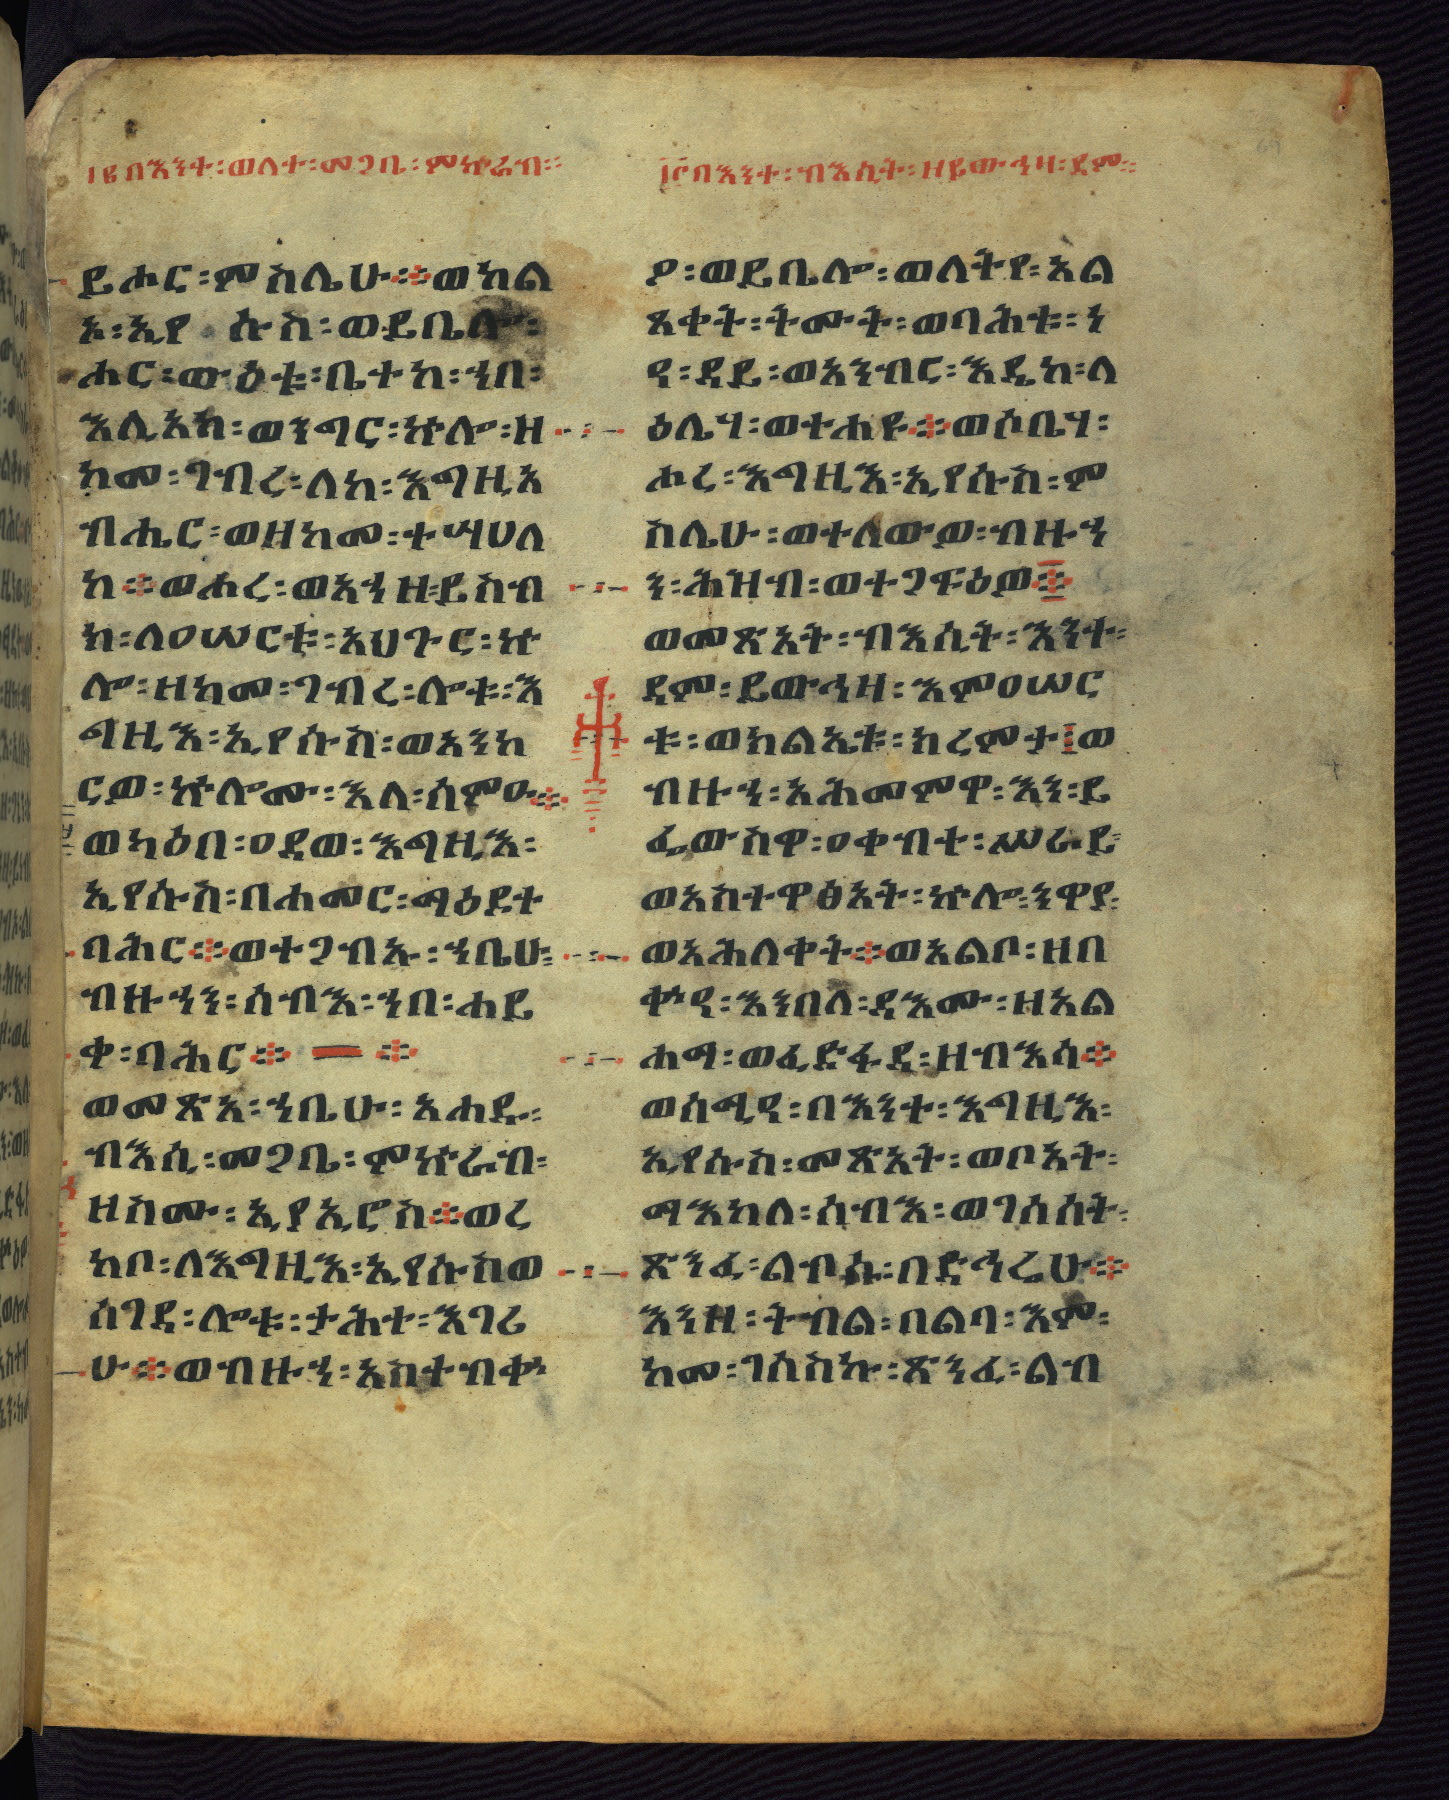 ፲፭በእንተ፡ወለተ፡መጋቢ፡ምኵራብ።
ይሖር፡ምስሌሁ።ወከል
አ፡ኢየ ሱስ፡ወይቤሎ፡
ሖር፡ውዕቱ፡ቤተከ፡ኀበ፡
እሊአከ፡ወንግር፡ኵሎ፡ዘ
ከመ፡ገብረ፡ለከ፡እግዚአ
ብሔር፡ወዘከመ፡ተሣሀለ
ከ።ወሖረ፡ወአኀዘ፡ይስብ
ክ፡ለዐሠርቱ፡አህጉር፡ኵ
ሎ፡ዘከመ፡ገብረ፡ሎቱ፡እ
ግዚእ፡ኢየሱስ፡ወአንከ
ርዎ፡ኵሎሙ፡እለ፡ሰምዑ።
ወካዕበ፡ዐደወ፡እግዚእ፡
ኢየሱስ፡በሐመር፡ማዕደተ
ባሕር።ወተጋብኡ፡ኀቤሁ፡
ብዙኀን፡ሰብእ፡ኀበ፡ሐይ
ቀ፡ባሕር።
ወመጽአ፡ኀቤሁ፡አሐዱ፡
ብእሲ፡መጋቤ፡ምኵራብ፡
ዘስሙ፡ኢያኢሮስ።ወረ
ከቦ፡ለእግዚእ፡ኢየሱስወ
ሰገደ፡ሎቱ፡ታሕተ፡እገሪ
ሁ።ወብዙኀ፡አስተብቍ
፲፮በእንተ፡ብእሲት፡ዘይውኅዛ፡ደም።
ዖ፡ወይቤሎ፡ወለትየ፡አል
ጸቀት፡ትሙት፡ወባሕቱ፡ነ
ዓ፡ዳይ፡ወአንብር፡እዴከ፡ላ
ዕሌሃ፡ወተሐዩ።ወሶቤሃ፡
ሖረ፡እግዚእ፡ኢየሱስ፡ም
ስሌሁ፡ወተለውዎ፡ብዙኀ
ን፡ሕዝብ፡ወተጋፍዕዎ።
ወመጽአት፡ብእሲት፡እንተ፡
ደም፡ይውኅዛ፡እምዐሠር
ቱ፡ወክልኤቱ፡ክረምት፡ወ
ብዙኀ፡አሕመምዋ፡እን፡ይ
ፌውስዋ፡ዐቀብተ፡ሥራይ፡
ወአስተዋፅአት፡ኵሎ፡ንዋያ፡
ወአሕለቀት።ወአልቦ፡ዘበ
ቍዓ፡እንበለ፡ዳእሙ፡ዘአል
ሐማ፡ወፈድፋደ፡ዘብእሳ።
ወሰሚዓ፡በእንተ፡እግዚእ፡
ኢየሱስ፡መጽአት፡ወቦአት፡
ማእከለ፡ሰብእ፡ወገሰሰት፡
ጽንፈ፡ልብሱ፡በድኅሬሁ።
እንዘ፡ትብል፡በልባ፡እም፡
ከመ፡ገሰስኩ፡ጽንፈ፡ልብ